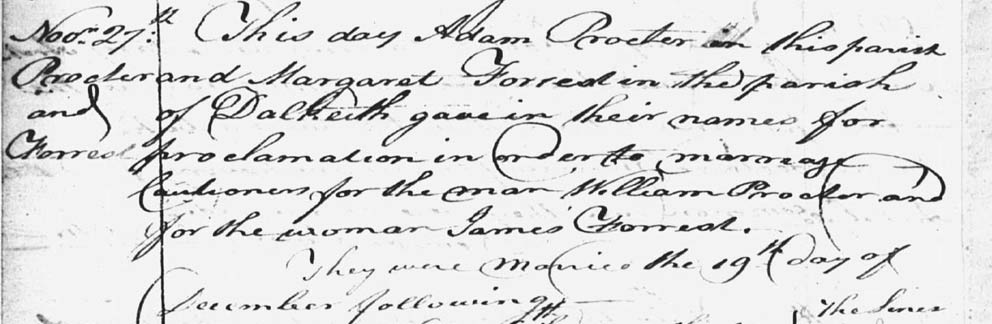 Novr. 27th. This day Adam Procter in this parish
Procter and Margaret Forrest in the parish
and of Dalkeith gave in their names for
Forrest proclamation in order to marreage
Cautioners for the man William Procter and
for the woman James Forrest.
They were married the 19th day of
December following
The Sines